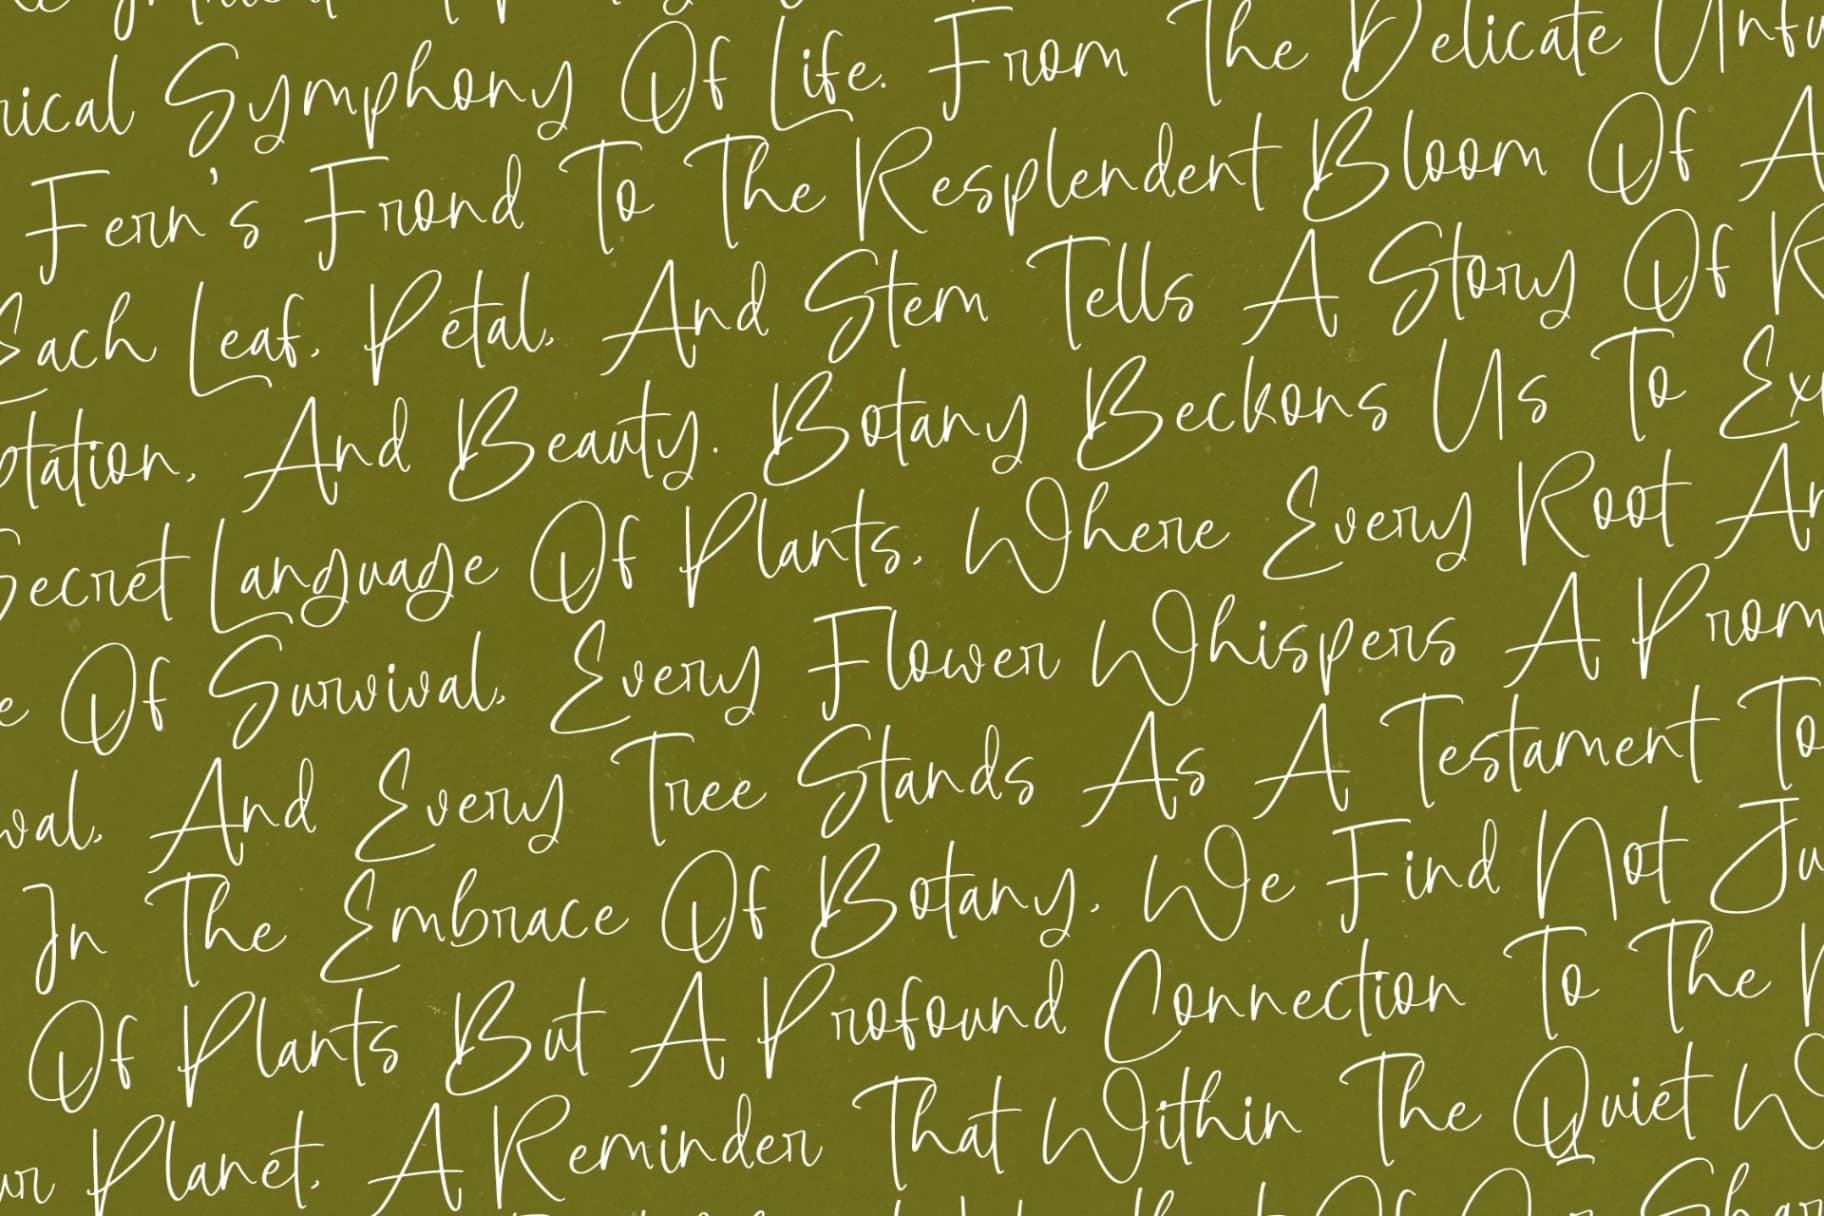 rical Symphony Of Life. From The Delicate Unfu
Fern's Frond To The Resplendent Bloom Of A
Each Leaf, Petal, And Stem Tells A Story Of R
ptation, And Beauty. Botany Beckons Us To Exp
Secret Language Of Plants, Where Every Root An
e Of Survival, Every Flower Whispers A Prom
val, And Every Tree Stands As A Testament To
In The Embrace Of Botany, We Find Not Ju
Of Plants But A Profound Connection To The
ur Planet, A Reminder That Within The Quiet W